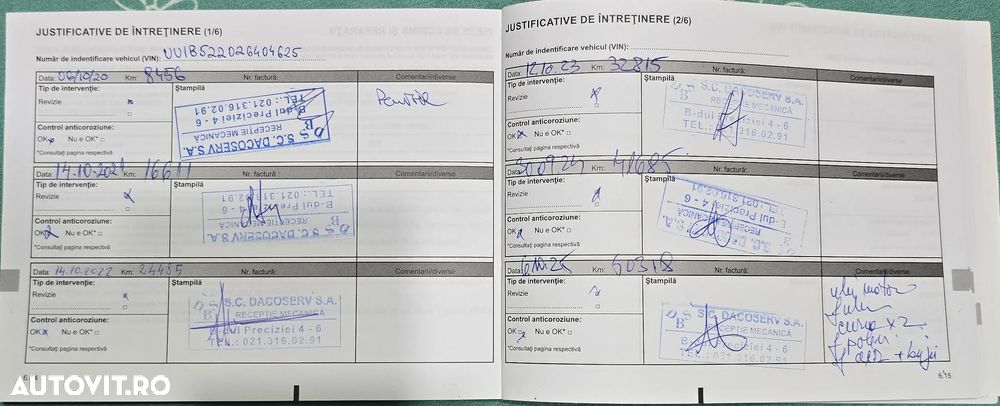 JUSTIFICATIVE DE ÎNTREŢINERE (1/6)
Număr de indentificare vehicul (VIN): UU1B522026404625
Data: 06/10/20 Km: 8456 Nr. factură: Comentarii/diverse
Tip de intervenţie: Ştampilă
Revizie
S.C. DACOSERV S.A.
RECEPTIE MECANICĂ
B-dul Preciziei 4 - 6
TEL.: 021.316.02.91
Control anticoroziune:
OK Nu e OK*
*Consultaţi pagina respectivă
Data: 14.10.2021 Km: 16611 Nr. factură: Comentarii/diverse
Tip de intervenţie: Ştampilă
Revizie
S.C. DACOSERV S.A.
RECEPTIE MECANICĂ
B-dul Preciziei 4 - 6
TEL.: 021.316.02.91
Control anticoroziune:
OK Nu e OK*
*Consultaţi pagina respectivă
Data: 14.10.2022 Km: 24455 Nr. factură: Comentarii/diverse
Tip de intervenţie: Ştampilă
Revizie
S.C. DACOSERV S.A.
RECEPTIE MECANICĂ
B-dul Preciziei 4 - 6
TEL.: 021.316.02.91
Control anticoroziune:
OK Nu e OK*
*Consultaţi pagina respectivă
JUSTIFICATIVE DE ÎNTREŢINERE (2/6)
Număr de indentificare vehicul (VIN):
Data: 12.10.23 Km: 32815 Nr. factură: Comentarii/diverse
Tip de intervenţie: Ştampilă
Revizie
S.C. DACOSERV S.A.
RECEPTIE MECANICĂ
B-dul Preciziei 4 - 6
TEL.: 021.316.02.91
Control anticoroziune:
OK Nu e OK*
*Consultaţi pagina respectivă
Km: 41685 Nr. factură: Comentarii/diverse
Tip de intervenţie: Ştampilă
Revizie
S.C. DACOSERV S.A.
RECEPTIE MECANICĂ
B-dul Preciziei 4 - 6
TEL.: 021.316.02.91
Control anticoroziune:
OK Nu e OK*
*Consultaţi pagina respectivă
Data: Km: 60318 Nr. factură: Comentarii/diverse
Tip de intervenţie: Ştampilă
Revizie
S.C. DACOSERV S.A.
RECEPTIE MECANICĂ
B-dul Preciziei 4 - 6
TEL.: 021.316.02.91
Control anticoroziune:
OK Nu e OK*
*Consultaţi pagina respectivă
ulei motor
polen
6.15
AUTOVIT.RO